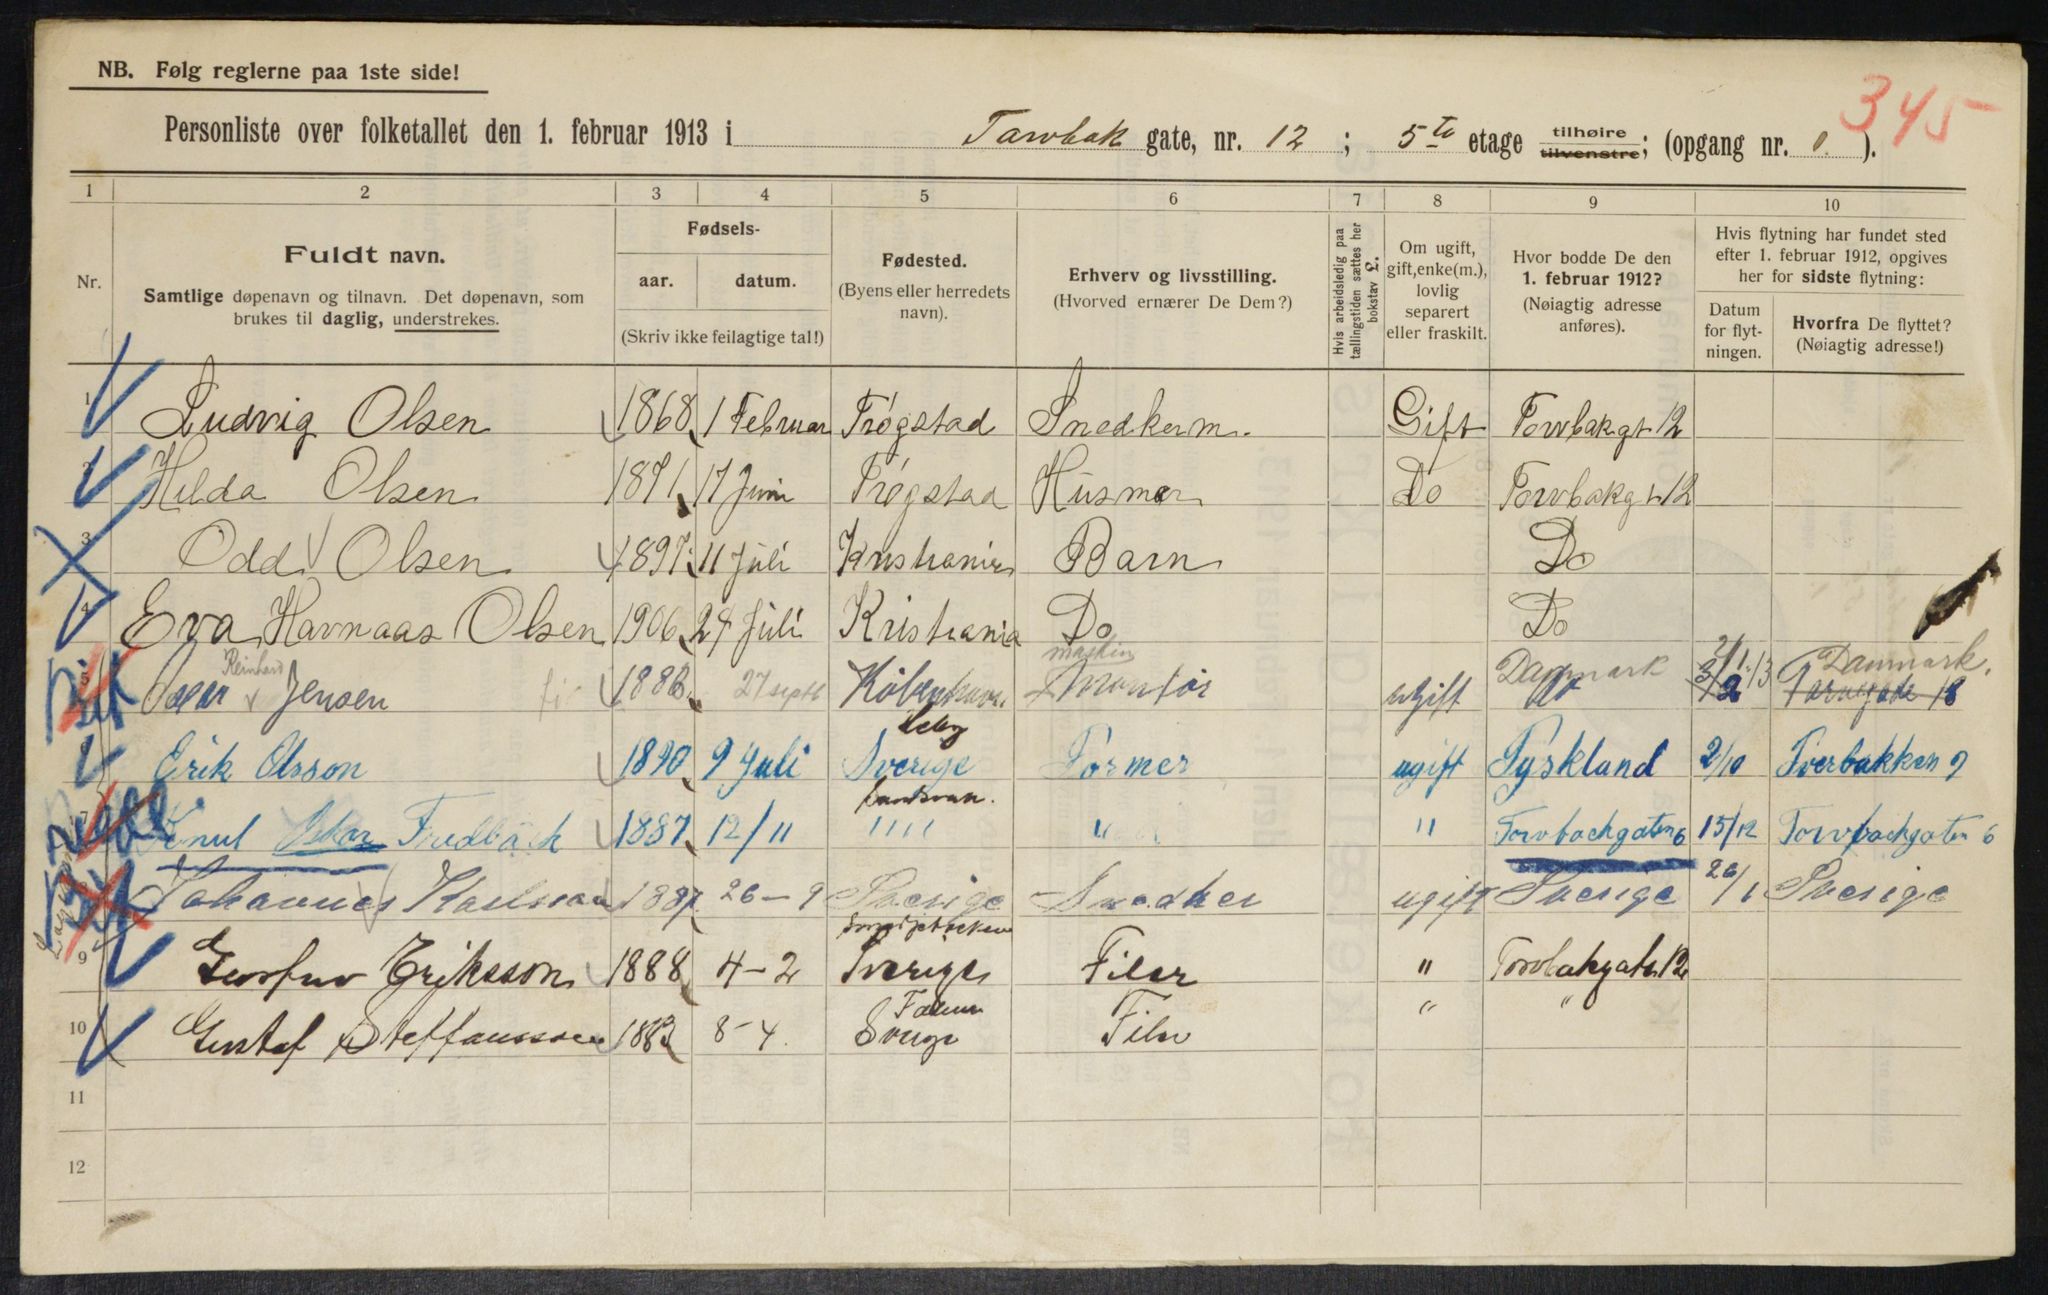 345
NB. Følg reglerne paa 1ste side!
Personliste over folketallet den 1. februar 1913 i Torvbak gate, nr. 12 ; 5te etage tilhøire tilvenstre; (opgang nr. 1. ).
1 2 3 4 5 6 7 8 9 10
Nr. Fuldt navn. Samtlige døpenavn og tilnavn. Det døpenavn, som brukes til daglig, understrekes.
Fødsels- aar. datum. (Skriv ikke feilagtige tal!)
Fødested. (Byens eller herredets navn).
Erhverv og livsstilling. (Hvorved ernærer De Dem?)
Hvis arbeidsledig paa tællingstiden sættes her bokstav £.
Om ugift, gift, enke(m.), lovlig separert eller fraskilt.
Hvor bodde De den 1. februar 1912? (Nøiagtig adresse anføres).
Hvis flytning har fundet sted efter 1. februar 1912, opgives her for sidste flytning:
Datum for flyt- ningen.
Hvorfra De flyttet? (Nøiagtig adresse!)
1 Ludvig Olsen 1868 1 Februar Trøgstad Snedkerm. Gift Torvbakgt 12
2 Hilda Olsen 1871 17 Juni Trøgstad Husmor Do Torvbakgt 12
3 Odd Olsen 1897 11 Juli Kristiania Barn Do
4 Eva Havnaas Olsen 1906 24 Juli Kristiania Do Do
Reinhard maskin 2/1-13 Danmark.
5 Oscar Jensen 1886 27 septb København Montør ugift Danmark
Seby
6 Erik Olsson 1890 9 Juli Sverige Former ugift Tyskland 2/10 Tverbakken 9
7 Knut Oskar Fredbäck 1887 12/11 " " " " " " Torvbachgaten 6 15/12 Torvbachgaten 6
8 Johannes Karlsson 1887 26-9 Sverige Snedker ugift Sverige 26/1 Sverige
9 Gustav Eriksson 1888 4-2 Sverige Filer " Torvbakgate 12
Falun
10 Gustaf Steffansson 1883 8-4. Sverige Filer " "
11
12